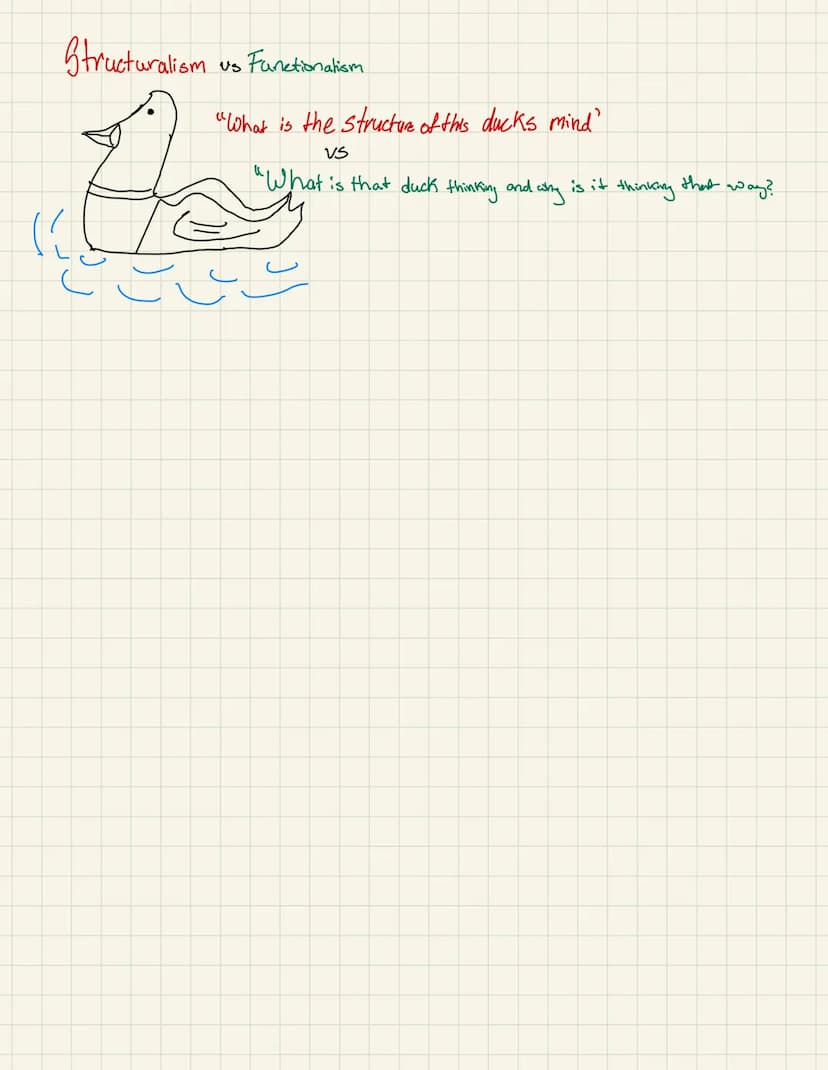 Structuralism vs Functionalism
"What is the structure of this ducks mind"
vs
"What is that duck thinking and why is it thinking that way?